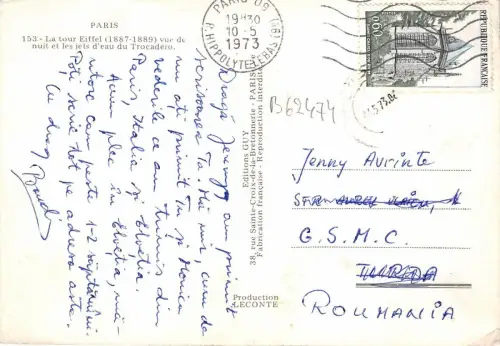 PARIS
153 - La tour Eiffel (1887-1889) vue de
nuit et les jets d'eau du Trocadéro.
Dragă Jenny, am primit
scrisoarea ta. Mă mir, cum de
nu ați primit tu și Monica
vederile ce am trimis din
Paris, Italia și Elveția.
Acum plec în Elveția, mă-
ntorc cam peste 1-2 săptămâni.
Poți scrie tot pe adresa asta.
Cu drag
Editions GUY
38, rue Sainte-Croix-de-la-Bretonnerie - PARIS
Fabrication française - Reproduction interdite
Production
LECONTE
PARIS 09
19H30
10-5
1973
R.HIPPOLYTE LEBAS (9E)
0,90
REPUBLIQUE FRANÇAISE
B62474
Jenny Avrinte
STR.
G.S.M.C.
TURDA
ROUMANIA